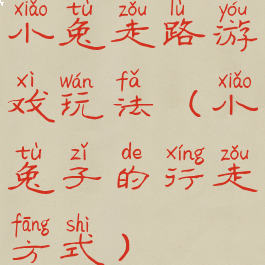 xiǎo tù zǒu lù yóu
小兔走路游
xì wán fǎ xiǎo
戏玩法（小
tù zǐ de xíng zǒu
兔子的行走
fāng shì
方式）